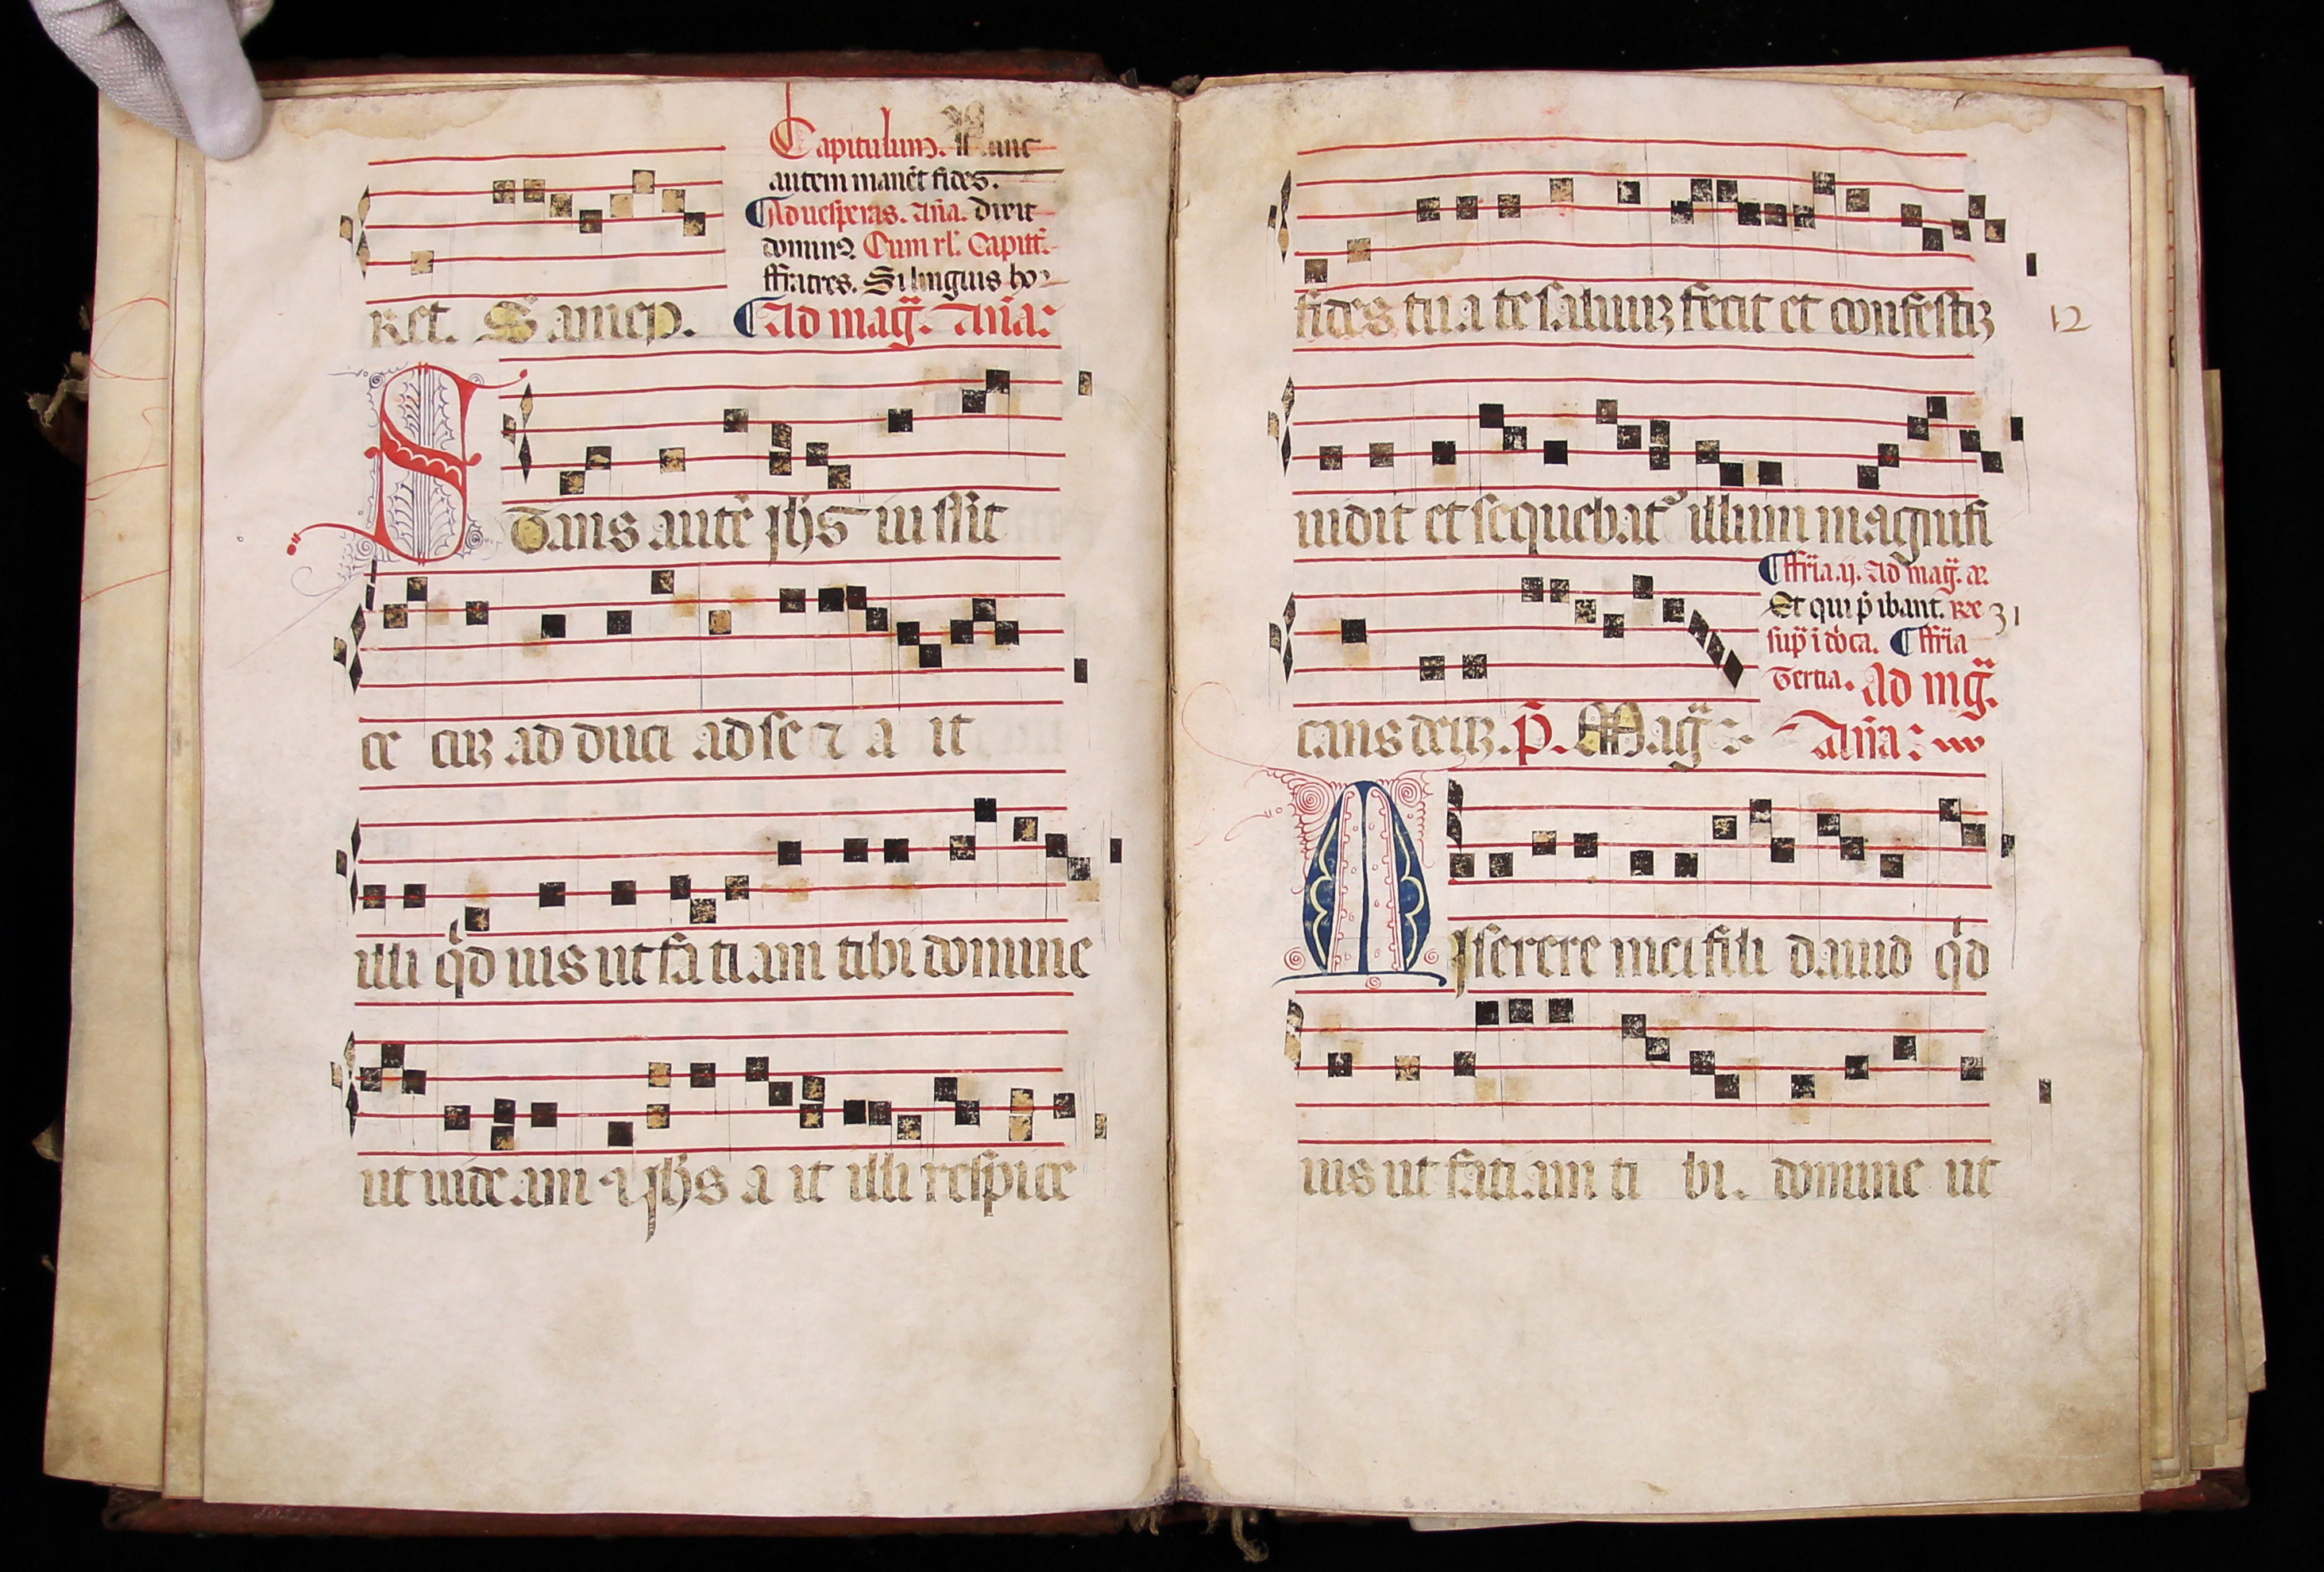 Capitulum. Nunc
autem manēt fides.
Ad uesperas. Aña. dixit
dominꝰ. Cum rł. Capitł.
ffratres. Si linguis ho
ret. Samep. Ad mag̃. Aña:
Stans autē jħs iussit
ce cūꝫ ad duci ad se ⁊ a it
illi qd uis ut fa ti am tibi domine
ut uide am ⁊ jħs a it illi respice
fides tu a te saluuꝫ fecit et confestiꝫ
12
uidit et sequebatᷣ illum magnifi
ffr̃ia .ij. Ad mag̃. a͠.
Et qui p̄ ibant. Re
31
sup̃ i
ffr̃ia
Tertia. Ad mg̃.
cans deuꝫ. p̃. Mag̃: Aña:
Miserere mei fili dauid qd
uis ut fati am ti bi. domine ut